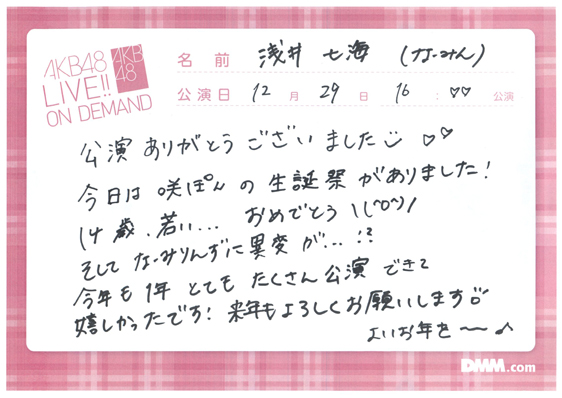 AKB48
LIVE!!
ON DEMAND
AKB
48
名前 浅井 七海 (なーみん)
公演日 12月 29日 16:♡♡ 公演
公演ありがとうございました ♡♡
今日は 咲ぽんの生誕祭がありました!
14歳、若い... おめでとう \\(^o^)/
そして なーみりんずに異変が...!?
今年も1年 とても たくさん公演できて
嬉しかったです! 来年もよろしくお願いします
よいお年を〜♪
DMM.com